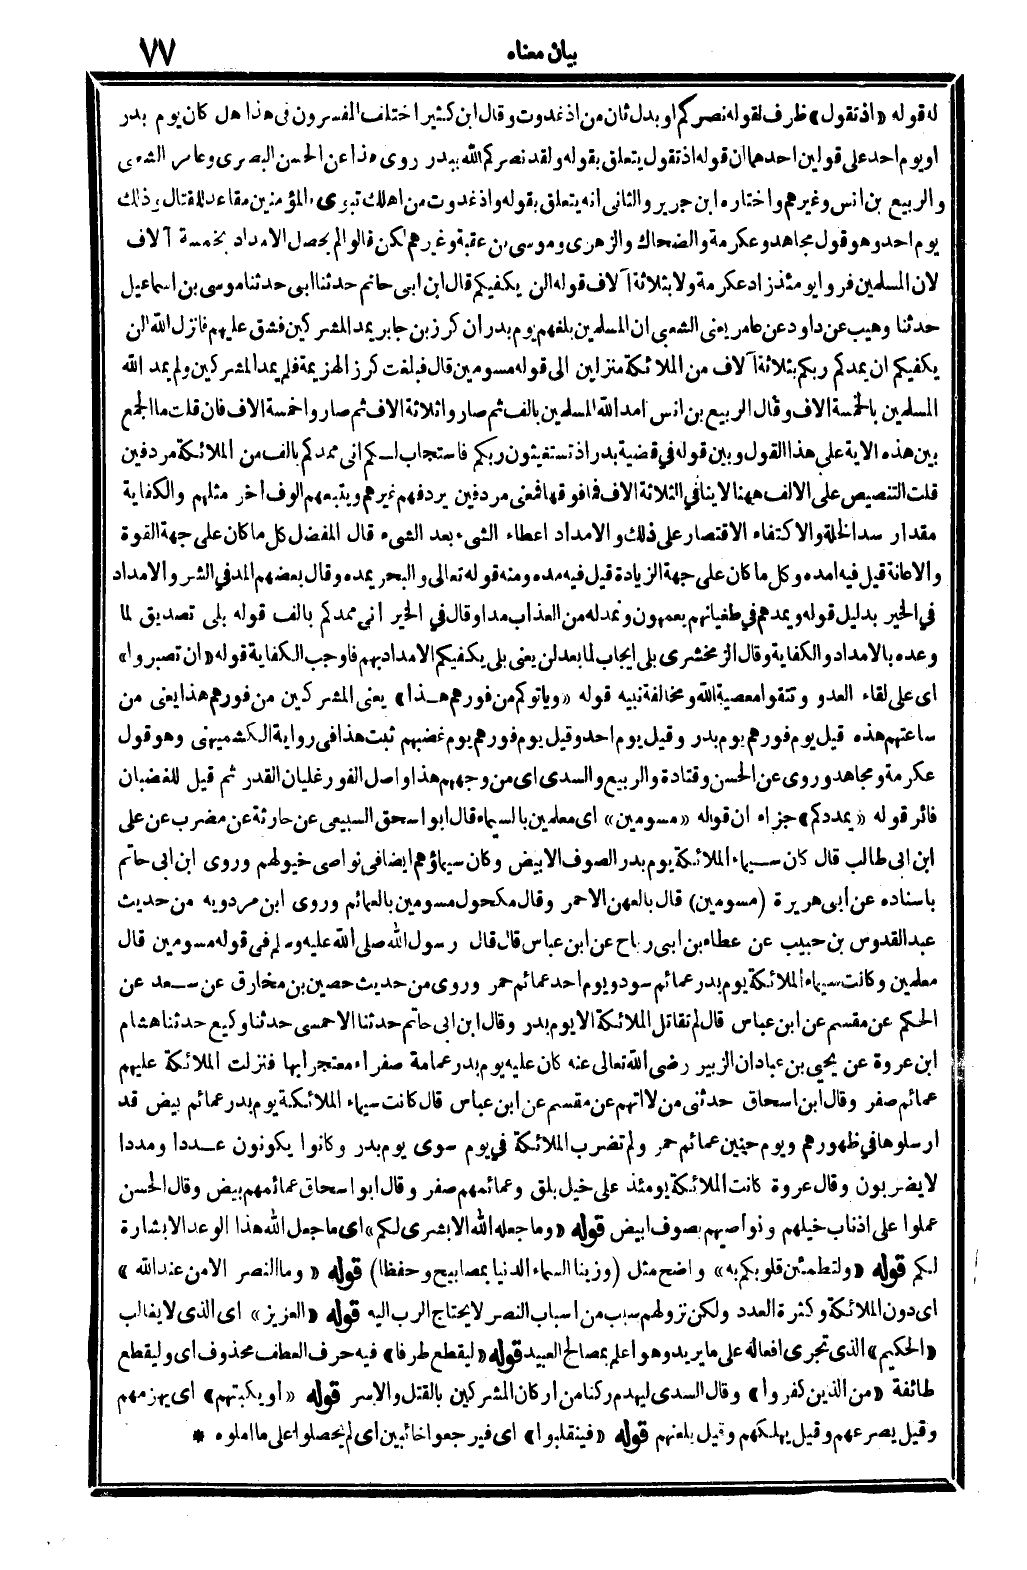 بيان معناه ٧٧
له قوله «اذ تقول» ظرف لقوله نصركم او بدل ثان من اذ غدوت وقال ابن كثير اختلف المفسرون في هذا هل كان يوم بدر
او يوم احد على قولين احدهما ان قوله اذ تقول يتعلق بقوله ولقد نصركم الله ببدر روى هذا عن الحسن البصرى وعامر الشعبى
والربيع بن انس وغيرهم واختاره ابن جرير والثانى انه يتعلق بقوله واذ غدوت من اهلك تبوىء المؤمنين مقاعد للقتال وذلك
يوم احد وهو قول مجاهد وعكرمة والضحاك والزهرى وموسى بن عقبة وغيرهم لكن قالوا لم يحصل الامداد بخمسة آلاف
لان المسلمين فروا يومئذ زاد عكرمة ولا بثلاثة آلاف قوله الن يكفيكم قال ابن ابى حاتم حدثنا ابى حدثنا موسى بن اسماعيل
حدثنا وهيب عن داود عن عامر يعنى الشعبى ان المسلمين بلغهم يوم بدر ان كرز بن جابر يمد المشركين فشق عليهم فانزل الله الن
يكفيكم ان يمدكم ربكم بثلاثة آلاف من الملائكة منزلين الى قوله مسومين قال فبلغت كرز الهزيمة فلم يمد المشركين ولم يمد الله
المسلمين بالخمسة الاف وقال الربيع بن انس امد الله المسلمين بالف ثم صاروا ثلاثة الاف ثم صاروا خمسة الاف فان قلت ما الجمع
بين هذه الاية على هذا القول وبين قوله في قضية بدر اذ تستغيثون ربكم فاستجاب لكم انى ممدكم بالف من الملائكة مردفين
قلت التنصيص على الالف ههنا لاينافي الثلاثة الاف فما فوقها فمعنى مردفين يردفهم غيرهم ويتبعهم الوف اخر مثلهم والكفاية
مقدار سد الخلة والاكتفاء الاقتصار على ذلك والامداد اعطاء الشىء بعد الشىء قال المفضل كل ما كان على جهة القوة
والاعانة قيل فيه امده وكل ما كان على جهة الزيادة قيل فيه مده ومنه قوله تعالى والبحر يمده وقال بعضهم المد في الشر والامداد
في الخير بدليل قوله ويمدهم في طغيانهم يعمهون ونمد له من العذاب مدا وقال في الخير انى ممدكم بالف قوله بلى تصديق لما
وعده بالامداد والكفاية وقال الزمخشرى بلى ايجاب لما بعد لن يعنى بلى يكفيكم الامداد بهم فاوجب الكفاية قوله «ان تصبروا»
اى على لقاء العدو وتتقوا معصية الله ومخالفة نبيه قوله «وياتوكم من فورهم هذا» يعنى المشركين من فورهم هذا يعنى من
ساعتهم هذه قيل يوم فورهم يوم بدر وقيل يوم احد وقيل يوم فورهم يوم غضبهم ثبت هذا فى رواية الكشميهنى وهو قول
عكرمة ومجاهد وروى عن الحسن وقتادة والربيع والسدى اى من وجههم هذا واصل الفور غليان القدر ثم قيل للغضبان
فائر قوله «يمددكم» جزاء ان قوله «مسومين» اى معلمين بالسيماء قال ابو اسحق السبيعى عن حارثة عن مضرب عن على
ابن ابى طالب قال كان سيماء الملائكة يوم بدر الصوف الابيض وكان سيماؤهم ايضا فى نواصى خيولهم وروى ابن ابى حاتم
باسناده عن ابى هريرة (مسومين) قال بالعهن الاحمر وقال مكحول مسومين بالعمائم وروى ابن مردويه من حديث
عبد القدوس بن حبيب عن عطاء بن ابى رباح عن ابن عباس قال قال رسول الله صلى الله عليه وسلم فى قوله مسومين قال
معلمين وكانت سيماء الملائكة يوم بدر عمائم سود ويوم احد عمائم حمر وروى من حديث حصين بن مخارق عن سعد عن
الحكم عن مقسم عن ابن عباس قال لم تقاتل الملائكة الا يوم بدر وقال ابن ابى حاتم حدثنا الاحمسى حدثنا وكيع حدثنا هشام
ابن عروة عن يحيى بن عباد ان الزبير رضى الله تعالى عنه كان عليه يوم بدر عمامة صفراء معتجرا بها فنزلت الملائكة عليهم
عمائم صفر وقال ابن اسحاق حدثنى من لا اتهم عن مقسم عن ابن عباس قال كانت سيماء الملائكة يوم بدر عمائم بيض قد
ارسلوها في ظهورهم ويوم حنين عمائم حمر ولم تضرب الملائكة في يوم سوى يوم بدر وكانوا يكونون عددا ومددا
لا يضربون وقال عروة كانت الملائكة يومئذ على خيل بلق وعمائمهم صفر وقال ابو اسحاق عمائمهم بيض وقال الحسن
عملوا على اذناب خيلهم ونواصيهم بصوف ابيض قوله «وما جعله الله الا بشرى لكم» اى ما جعل الله هذا الوعد الا بشارة
لكم قوله «ولتطمئن قلوبكم به» واضح مثل (وزينا السماء الدنيا بمصابيح وحفظا) قوله «وما النصر الا من عند الله»
اى دون الملائكة وكثرة العدد ولكن نزولهم سبب من اسباب النصر لا يحتاج الرب اليه قوله «العزيز» اى الذى لا يغالب
«الحكيم» الذى تجرى افعاله على ما يريد وهو اعلم بمصالح العبيد قوله «ليقطع طرفا» فيه حرف العطف محذوف اى وليقطع
طائفة «من الذين كفروا» وقال السدى ليهدم ركنا من اركان المشركين بالقتل والاسر قوله «او يكبتهم» اى يهزمهم
وقيل يصرعهم وقيل يهلكهم وقيل يلعنهم قوله «فينقلبوا» اى فيرجعوا خائبين اى لم يحصلوا على ما املوه *